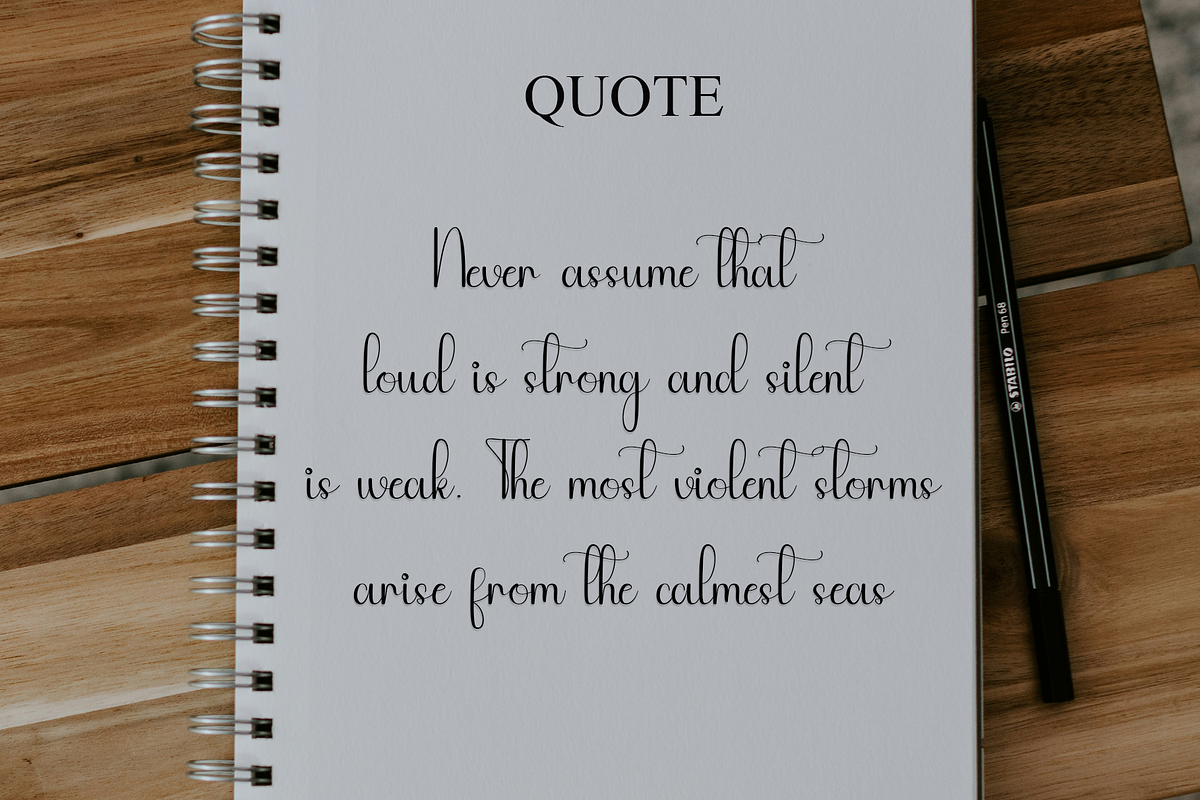 QUOTE
Never assume that
loud is strong and silent
is weak. The most violent storms
arise from the calmest seas
STABILO Pen 68